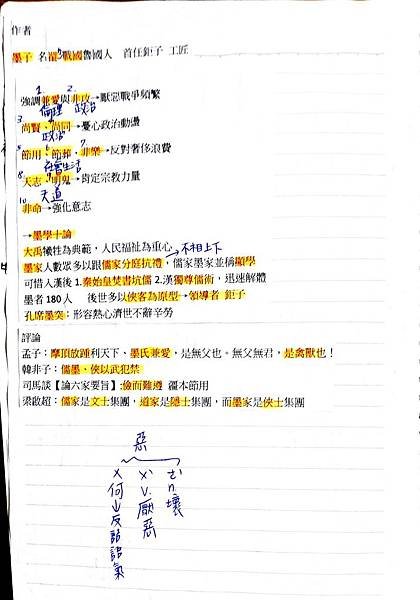 作者
墨子 名翟 戰國魯國人 首任鉅子 工匠
1. 2.
強調兼愛與非攻→厭惡戰爭頻繁
倫理 政治
3. 4.
尚賢、尚同→憂心政治動盪
政治
5 6 7.
節用、節葬、非樂→反對奢侈浪費
社會生活
8 9
天志、明鬼→肯定宗教力量
天道
10
非命→強化意志
→墨學十論
大禹犧牲為典範，人民福祉為重心
不相上下
墨家人數眾多以跟儒家分庭抗禮，儒家墨家並稱顯學
可惜入漢後 1.秦始皇焚書坑儒 2.漢獨尊儒術，迅速解體
墨者 180人 後世多以俠客為原型→領導者 鉅子
孔席墨突：形容熱心濟世不辭辛勞
評論
孟子：摩頂放踵利天下、墨氏兼愛，是無父也。無父無君，是禽獸也！
韓非子：儒墨、俠以武犯禁
司馬談【論六家要旨】:儉而難遵 疆本節用
梁啟超：儒家是文士集團，道家是隱士集團，而墨家是俠士集團
惡
ㄜˋ n. 壞
ㄨˋ v. 厭惡
ㄨ 何 反詰語氣